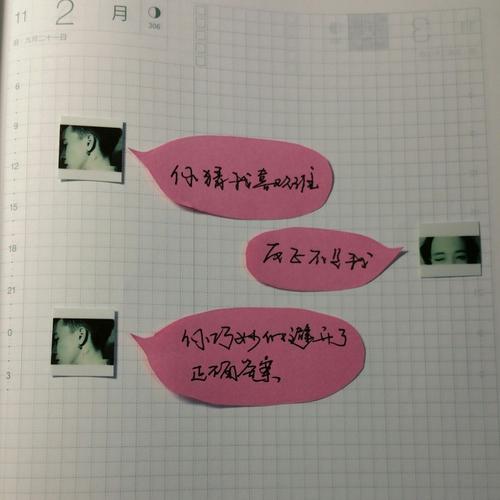 11
2
月
306
九月二十一日
6
9
12
15
18
21
0
3
你猜我喜欢谁
反正不是我
你巧妙似的避开了
正确答案